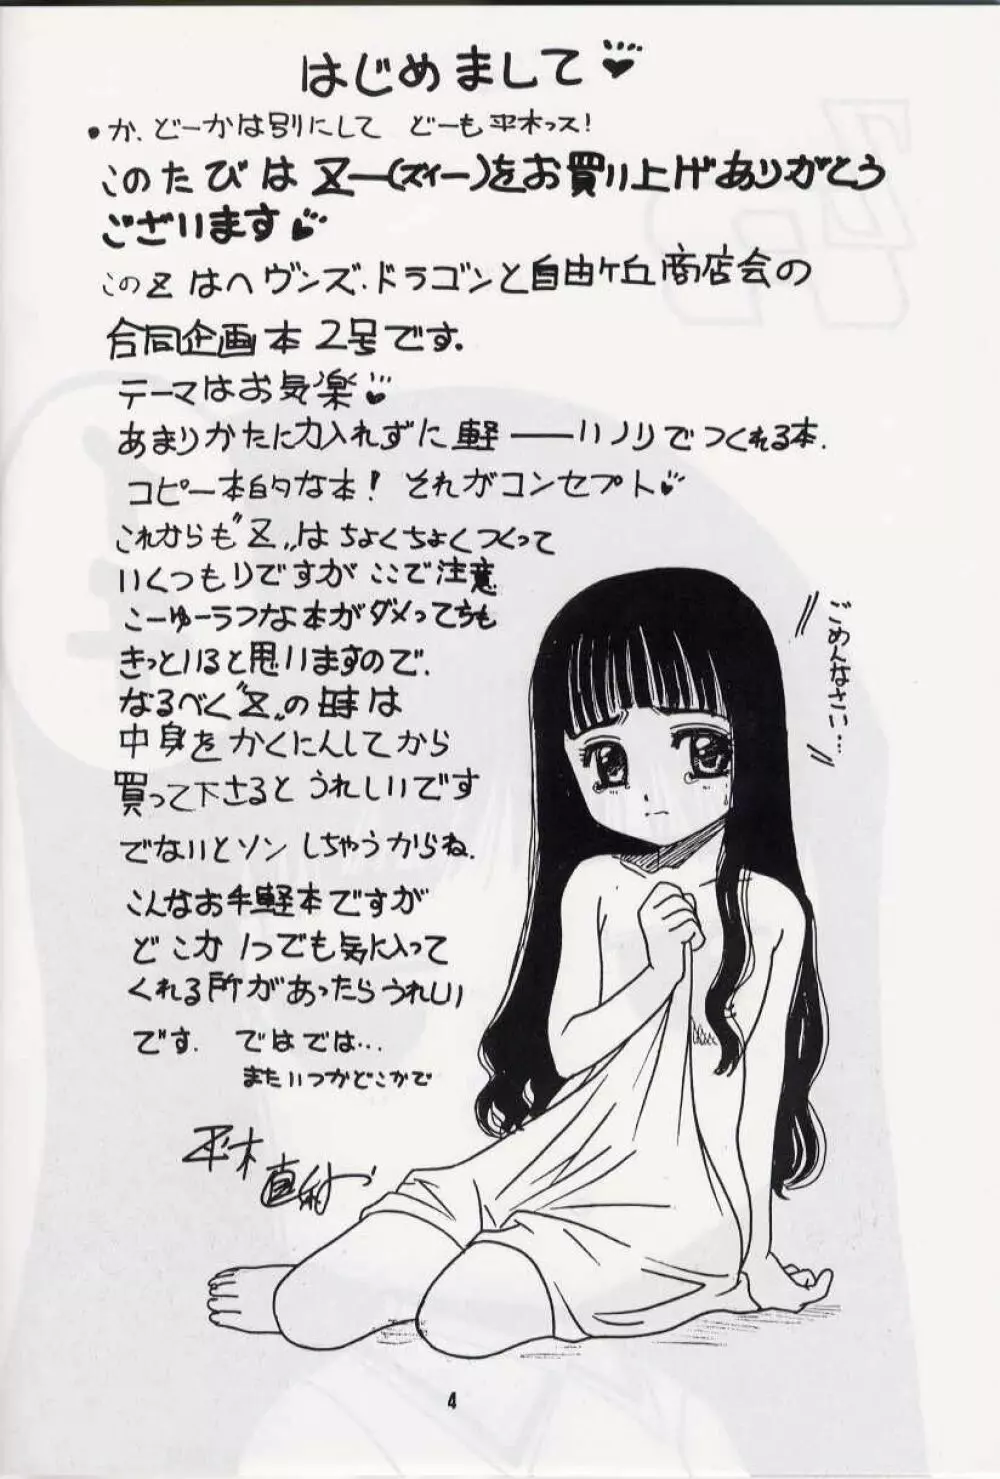 はじめまして
•か、どーかは別にして どーも平木っス!
このたびは Z―(ズィー)をお買り上げありがとう
ございます
このZはヘヴンズ・ドラゴンと自由ヶ丘商店会の
合同企画本2号です.
テーマはお気楽
あまりかたに力入れずに軽――いノリでつくれる本.
コピー本的な本! それがコンセプト
これからも"Z"はちょくちょくつくって
いくつもりですが ここで注意
こーゆーラフな本がダメって方も
きっといると思いますので.
なるべく"Z"の時は
中身をかくにんしてから
買って下さるとうれしいです
でないとソンしちゃうからね.
こんなお手軽本ですが
どこか1つでも気に入って
くれる所があったらうれしい
です. ではでは…
またいつかどこかで
平木直利
ごめんなさい…
4